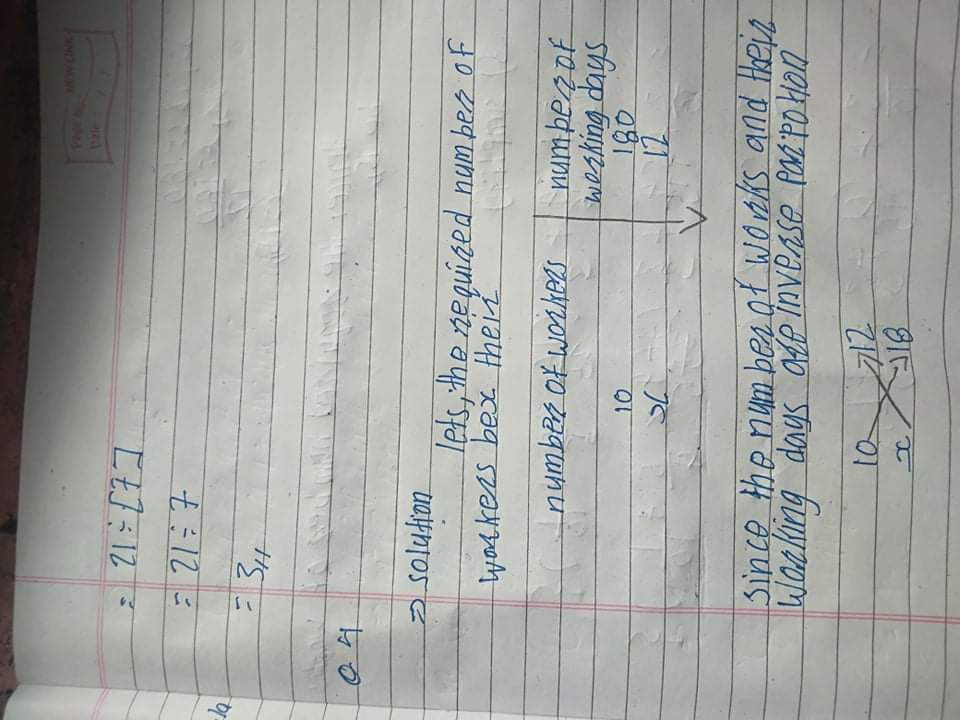 PAGE No.
Date
= 21 ÷ [7]
= 21 ÷ 7
= 3//
Q 4
⇒ solution
lets, the required number of
workers bex their
number of workers number of
working days
10 180
x 12
Since the number of works and their
working days are inverse porpotion
10 12
x 18